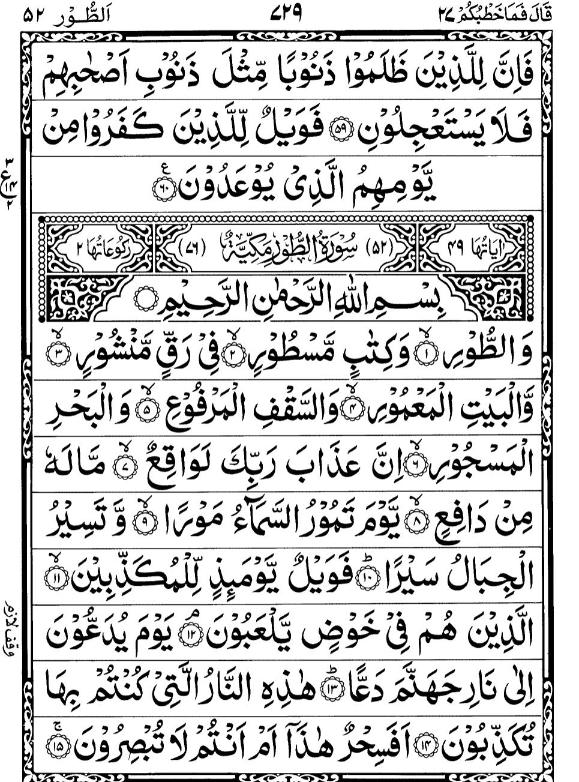 قَالَ فَمَا خَطْبُكُمْ ٢٧ ٧٢٩ اَلطُّوْر ٥٢
فَاِنَّ لِلَّذِيْنَ ظَلَمُوْا ذَنُوْبًا مِّثْلَ ذَنُوْبِ اَصْحٰبِهِمْ
فَلَا يَسْتَعْجِلُوْنِ ۝٥٩ فَوَيْلٌ لِّلَّذِيْنَ كَفَرُوْا مِنْ
يَّوْمِهِمُ الَّذِىْ يُوْعَدُوْنَ ۝٦٠ ع
٣ ع ١٤ ٢
اٰيَاتُهَا ٤٩ (٥٢) سُوْرَةُ الطُّوْرِ مَكِّيَّةٌ (٧٦) رُكُوْعَاتُهَا ٢
بِسْمِ اللهِ الرَّحْمٰنِ الرَّحِيْمِ ۝
وَالطُّوْرِ ۝١ۙ وَكِتٰبٍ مَّسْطُوْرٍ ۝٢ۙ فِىْ رَقٍّ مَّنْشُوْرٍ ۝٣ۙ
وَّالْبَيْتِ الْمَعْمُوْرِ ۝٤ۙ وَالسَّقْفِ الْمَرْفُوْعِ ۝٥ۙ وَالْبَحْرِ
الْمَسْجُوْرِ ۝٦ۙ اِنَّ عَذَابَ رَبِّكَ لَوَاقِعٌ ۝٧ۙ مَّا لَهٗ
مِنْ دَافِعٍ ۝٨ۙ يَّوْمَ تَمُوْرُ السَّمَآءُ مَوْرًا ۝٩ۙ وَّتَسِيْرُ
الْجِبَالُ سَيْرًا ۝١٠ؕ فَوَيْلٌ يَّوْمَئِذٍ لِّلْمُكَذِّبِيْنَ ۝١١ۙ
الَّذِيْنَ هُمْ فِىْ خَوْضٍ يَّلْعَبُوْنَ ۝١٢ۘ يَوْمَ يُدَعُّوْنَ
وقف لازم
اِلٰى نَارِ جَهَنَّمَ دَعًّا ۝١٣ؕ هٰذِهِ النَّارُ الَّتِىْ كُنْتُمْ بِهَا
تُكَذِّبُوْنَ ۝١٤ اَفَسِحْرٌ هٰذَآ اَمْ اَنْتُمْ لَا تُبْصِرُوْنَ ۝١٥ۚ